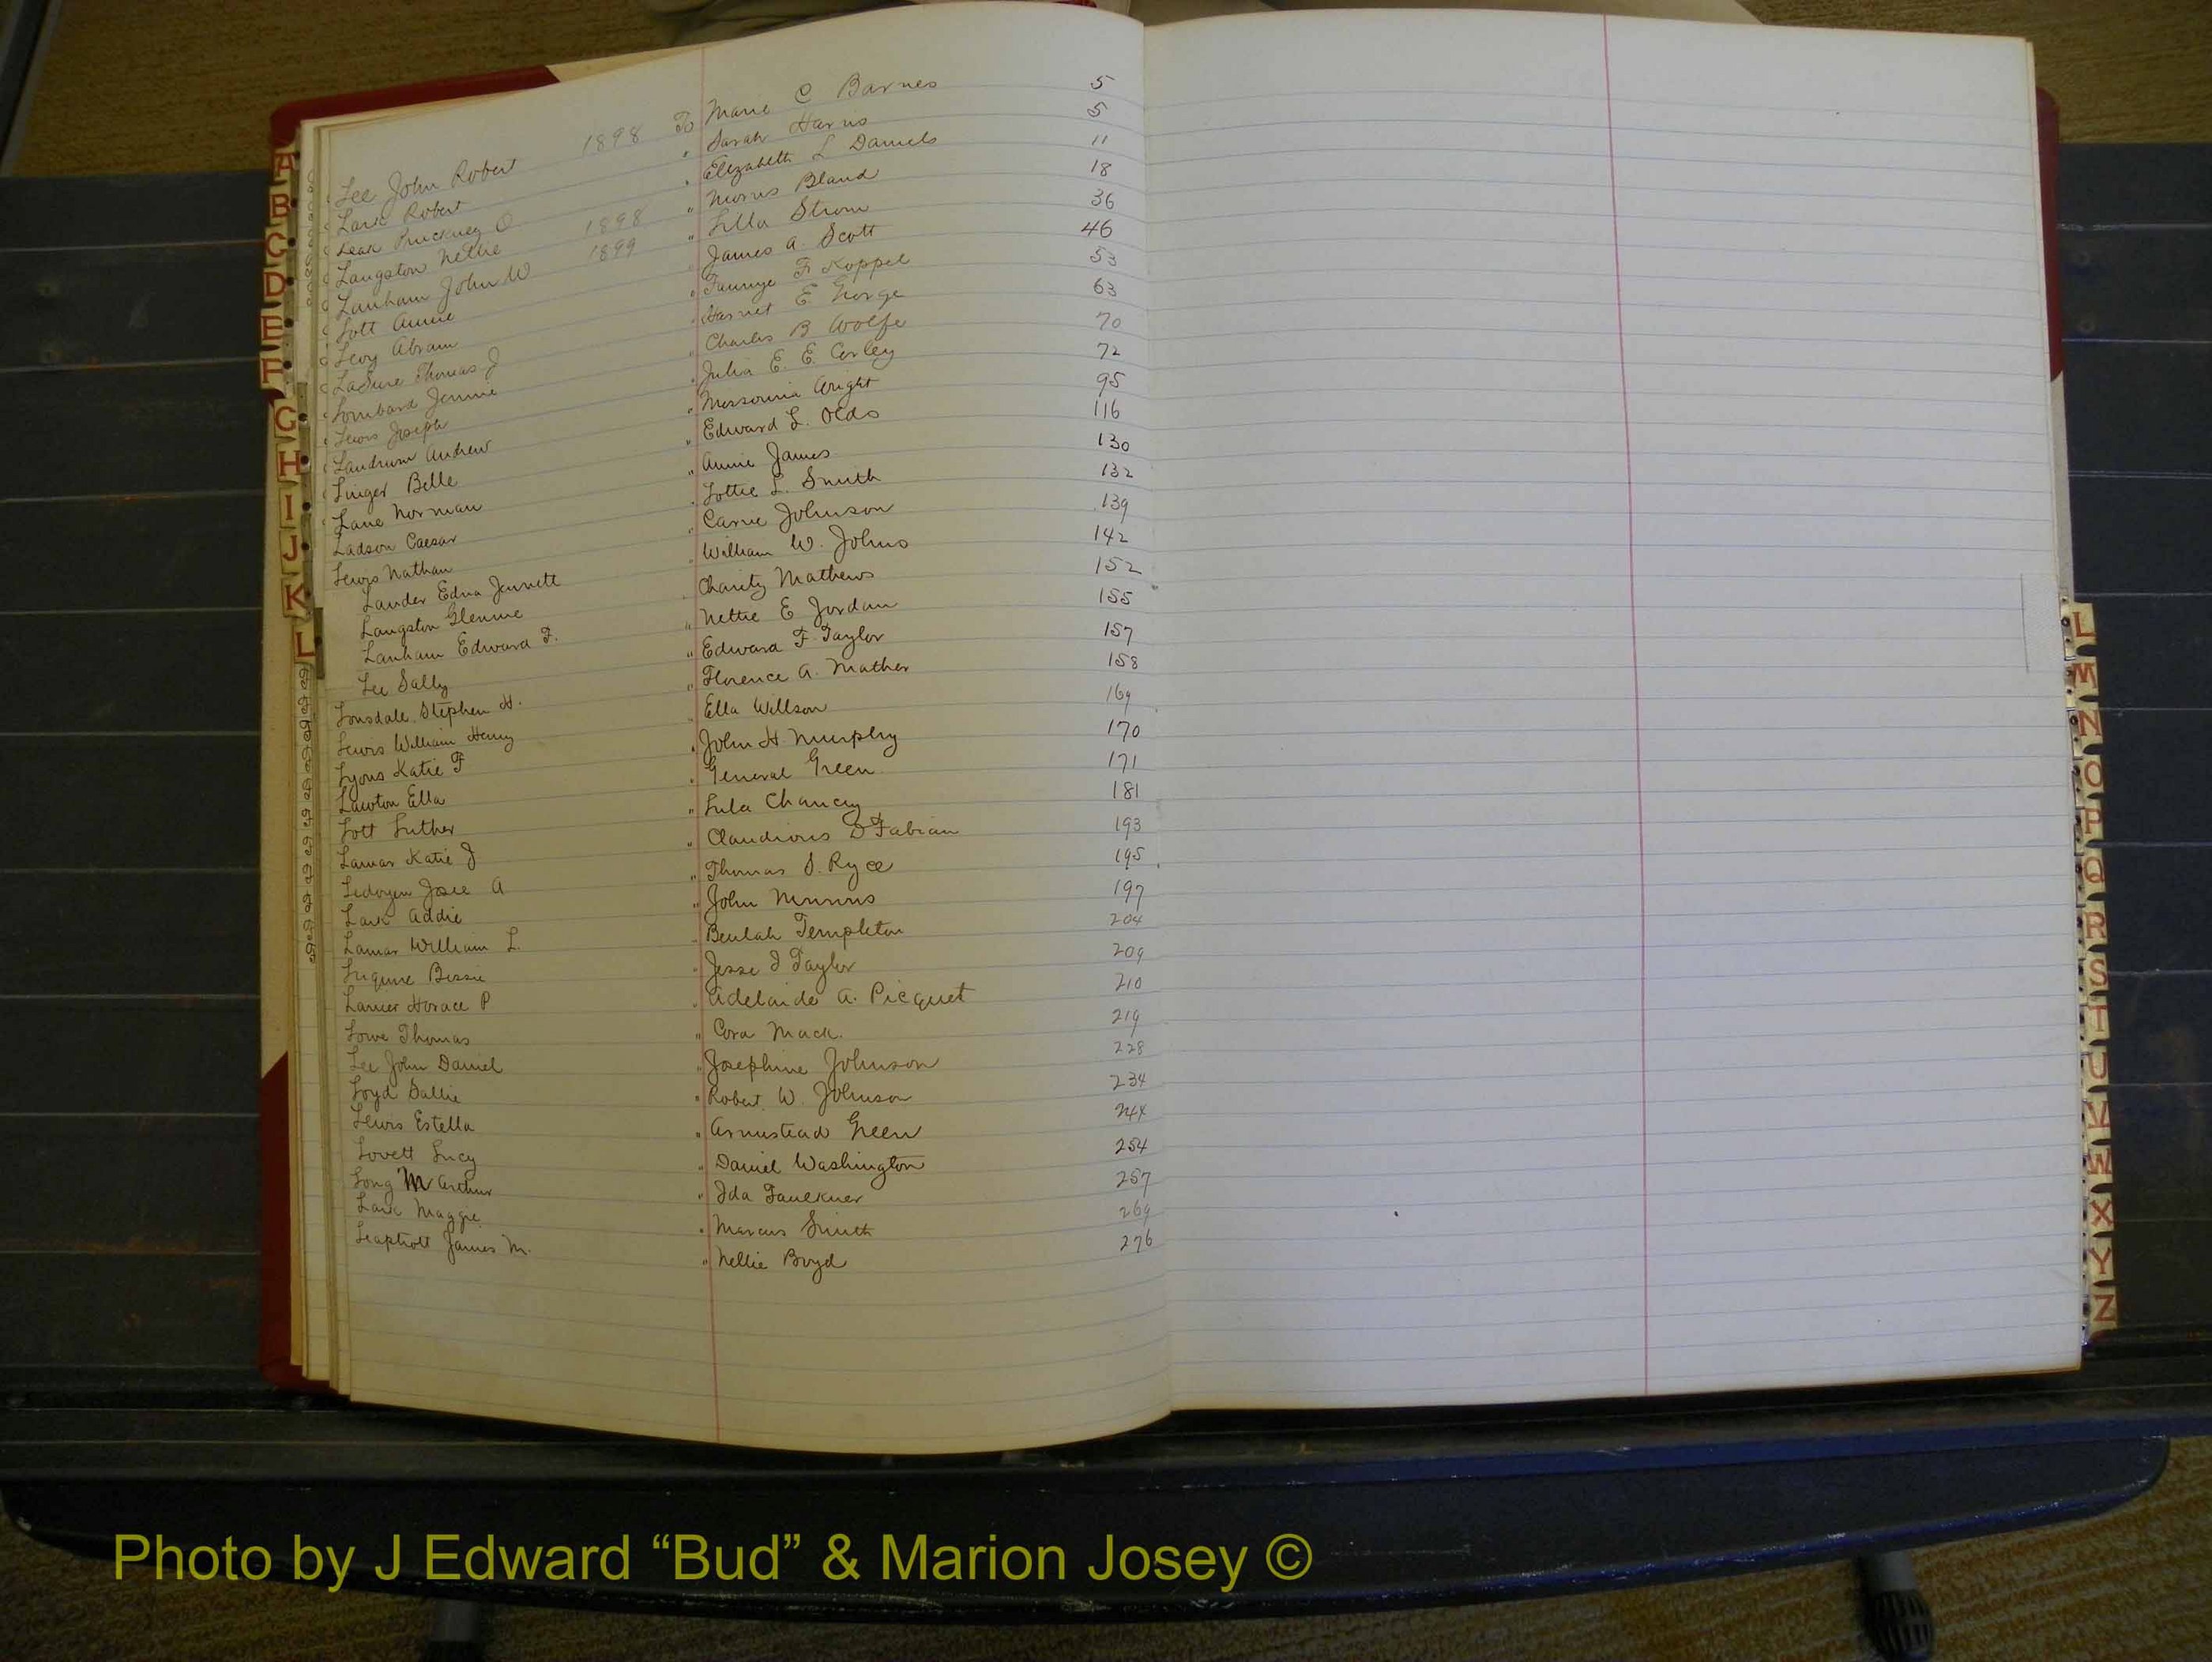 Lee John Robert 1898 To Marie C Barnes 5
Lark Robert " Sarah Harris 5
Leak Pinckney O " Elizabeth L Daniels 11
Langston Nettie 1898 " Morris Bland 18
Lanham John W 1899 " Lilla Strom 36
Lott Annie James A. Scott 46
Levy Abram " Fannye F Koppel 53
LaSure Thomas J " Harriet E. George 63
Lombard Jennie " Charles B Wolfe 70
Lewis Joseph " Julia E. E. Corley 72
Landrum Andrew " Missouria Wright 95
Linger Belle " Edward L. Olds 116
Lane Norman " Annie James 130
Ladson Caesar " Lottie L. Smith 132
Lewis Nathan " Carrie Johnson 139
Lander Edna Jennett " William W. Johns 142
Langston Glennie " Charity Mathews 152
Lanham Edward F. " Nettie E Jordan 155
Lee Sally " Edward F. Taylor 157
Lonsdale Stephen H. " Florence A. Mather 158
Lewis William Henry " Ella Willson 169
Lyons Katie F " John H. Murphy 170
Lawton Ella " General Green 171
Lott Luther " Lula Chancey 181
Lamar Katie J " Claudious D Fabian 193
Ledoyen Josie A " Thomas S. Ryce 195
Lark Addie " John 197
Lamar William L. " Beulah Templeton 204
Luquire Bessie " Jesse J Taylor 209
Lanier Horace P " Adelaide A. Picquet 210
Lowe Thomas " Cora Mack. 219
Lee John Daniel " Josephine Johnson 228
Loyd Sallie " Robert W. Johnson 234
Lewis Estella " Armistead Green 244
Lovett Lucy " Daniel Washington 254
Long M Arthur " Ida Faulkner 257
Lark Maggie " Marcus Smith 269
Leaphott James M. " Nellie Boyd 276
A
B
C
D
E
F
G
H
I
J
K
L
L
M
N
O
P
Q
R
S
T
U
V
W
X
Y
Z
Photo by J Edward “Bud” & Marion Josey ©